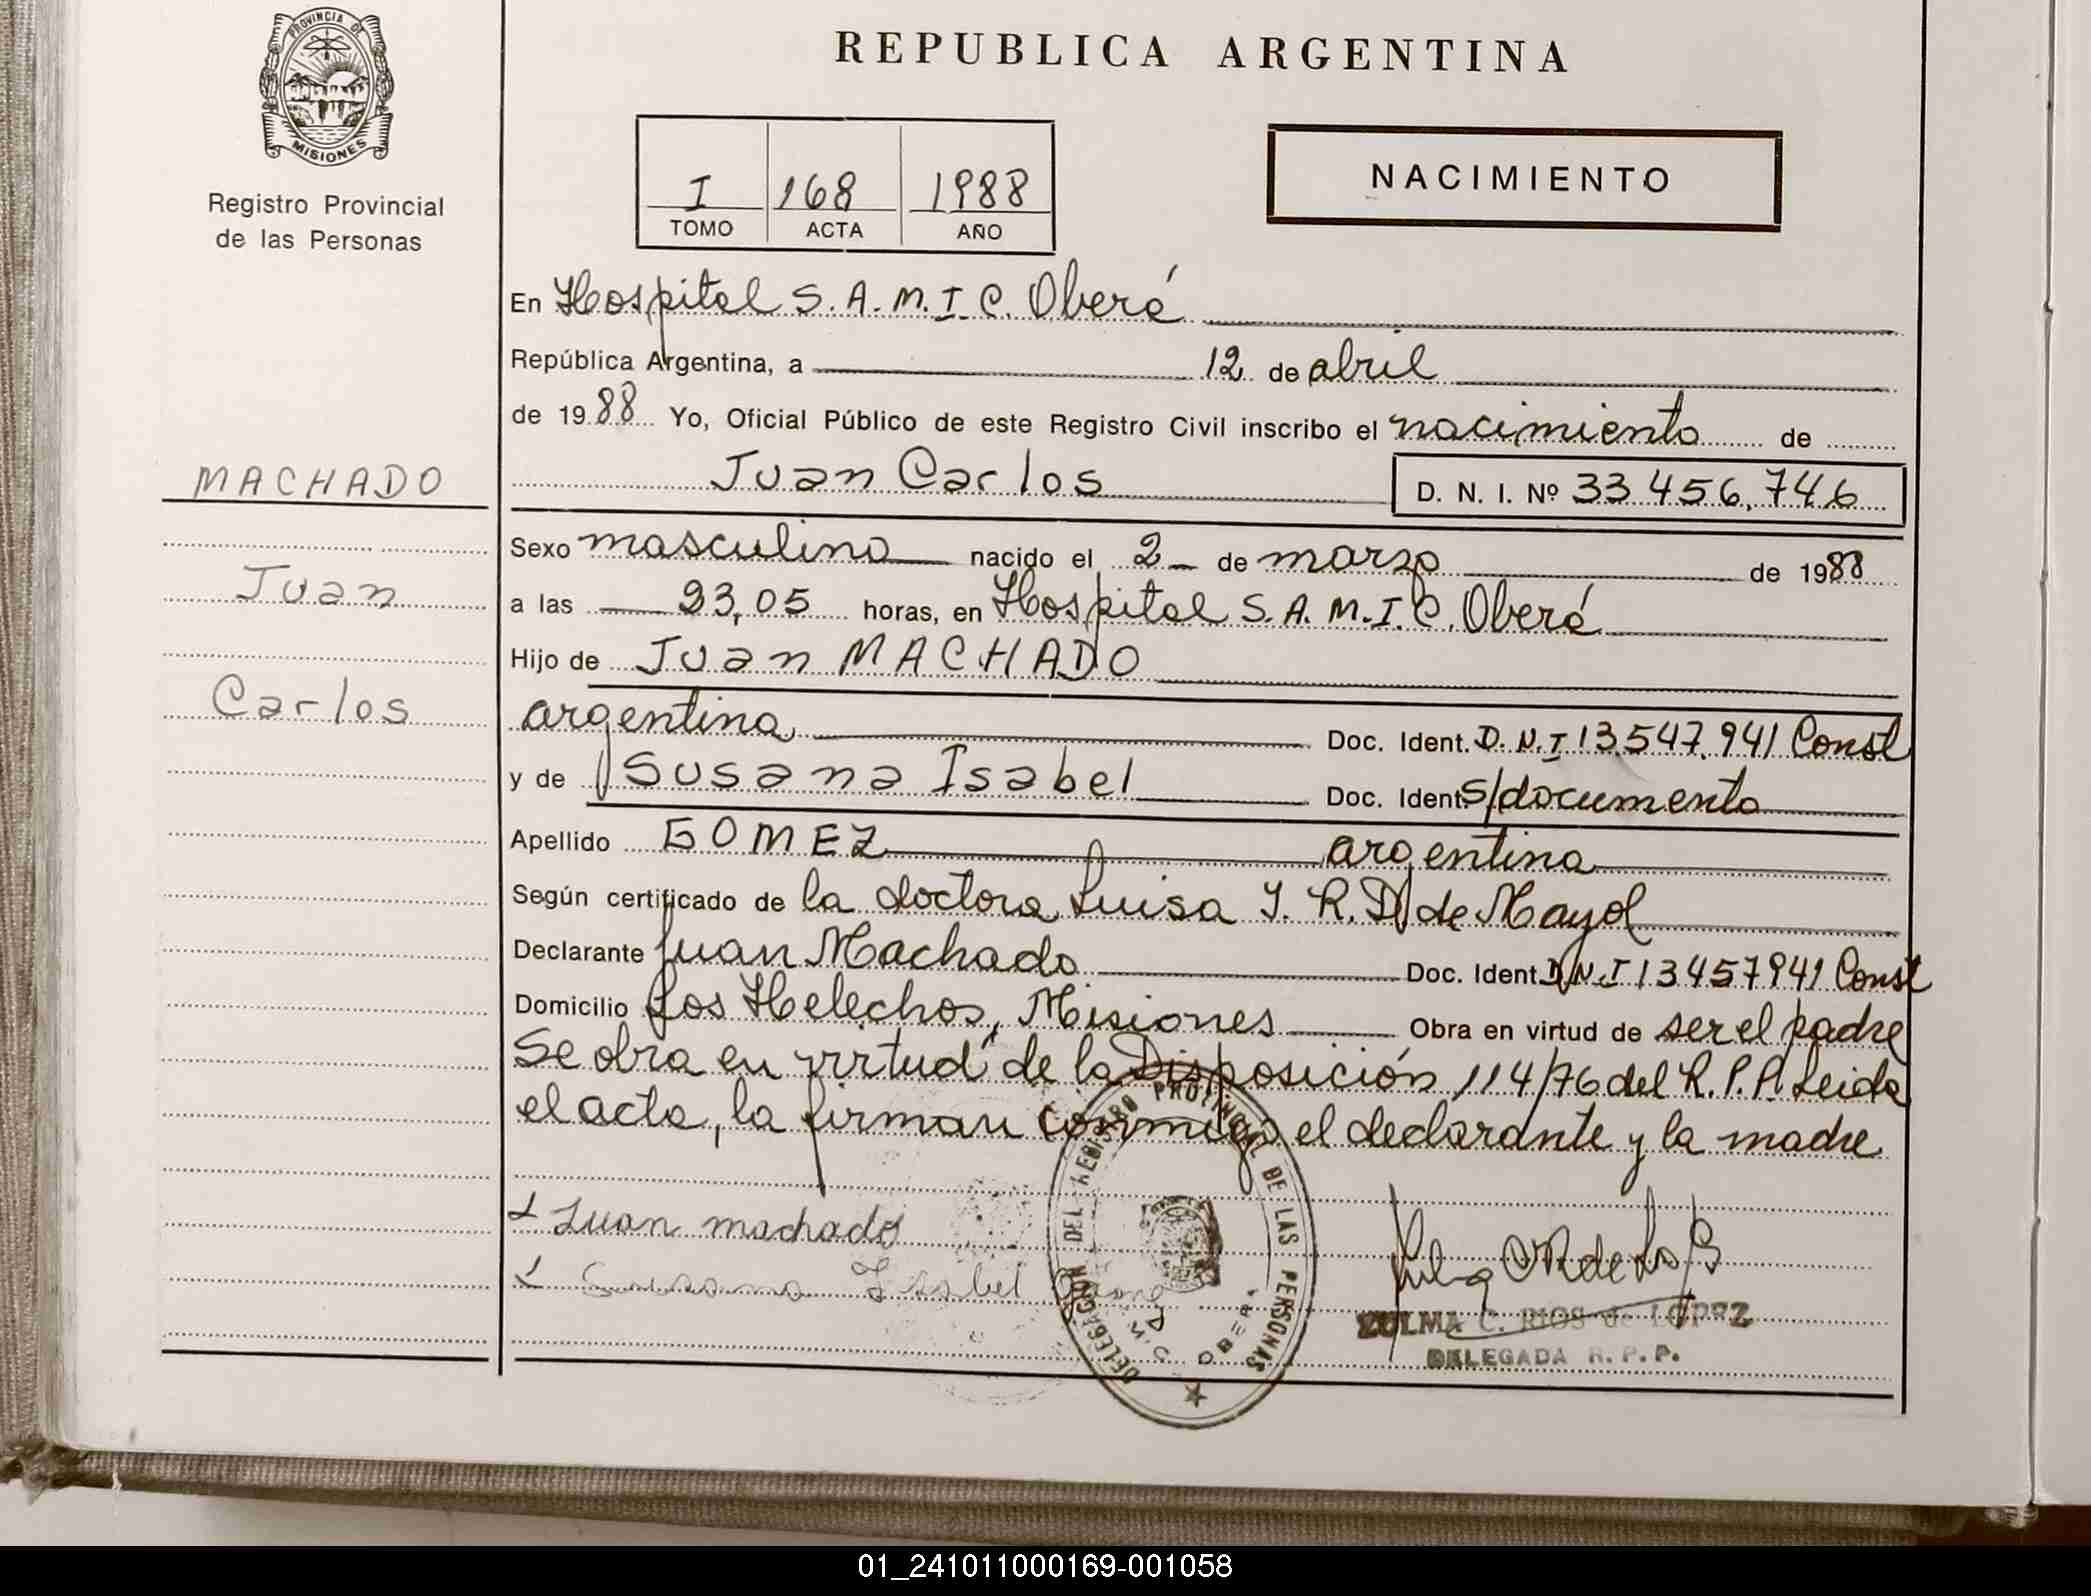 PROVINCIA DE
MISIONES
Registro Provincial
de las Personas
REPUBLICA ARGENTINA
I 168 1988
TOMO ACTA AÑO
NACIMIENTO
En Hospital S.A.M.I.C. Oberá
República Argentina, a 12 de abril
de 1988 Yo, Oficial Público de este Registro Civil inscribo el nacimiento de
MACHADO
Juan Carlos D. N. I. Nº 33.456.746
Sexo masculino nacido el 2 de marzo de 1988
Juan
a las 23,05 horas, en Hospital S.A.M.I.C. Oberá
Hijo de Juan MACHADO
Carlos
argentina Doc. Ident. D.N.I 13.547.941 Const
y de Susana Isabel Doc. Ident. S/documento
Apellido GOMEZ argentina
Según certificado de la doctora Luisa Y. R. D. de Mayol
Declarante Juan Machado Doc. Ident. D.N.I 13457941 Const
Domicilio Los Helechos, Misiones Obra en virtud de ser el padre
Se obra en virtud de la Disposición 114/76 del R.P.P. Leida
el acta, la firman conmigo el declarante y la madre
Juan machado
Susana Isabel
DELEGACION DEL REGISTRO PROVINCIAL DE LAS PERSONAS
OBERA
ZULMA C. RIOS de LOPEZ
DELEGADA R.P.P.
01_241011000169-001058